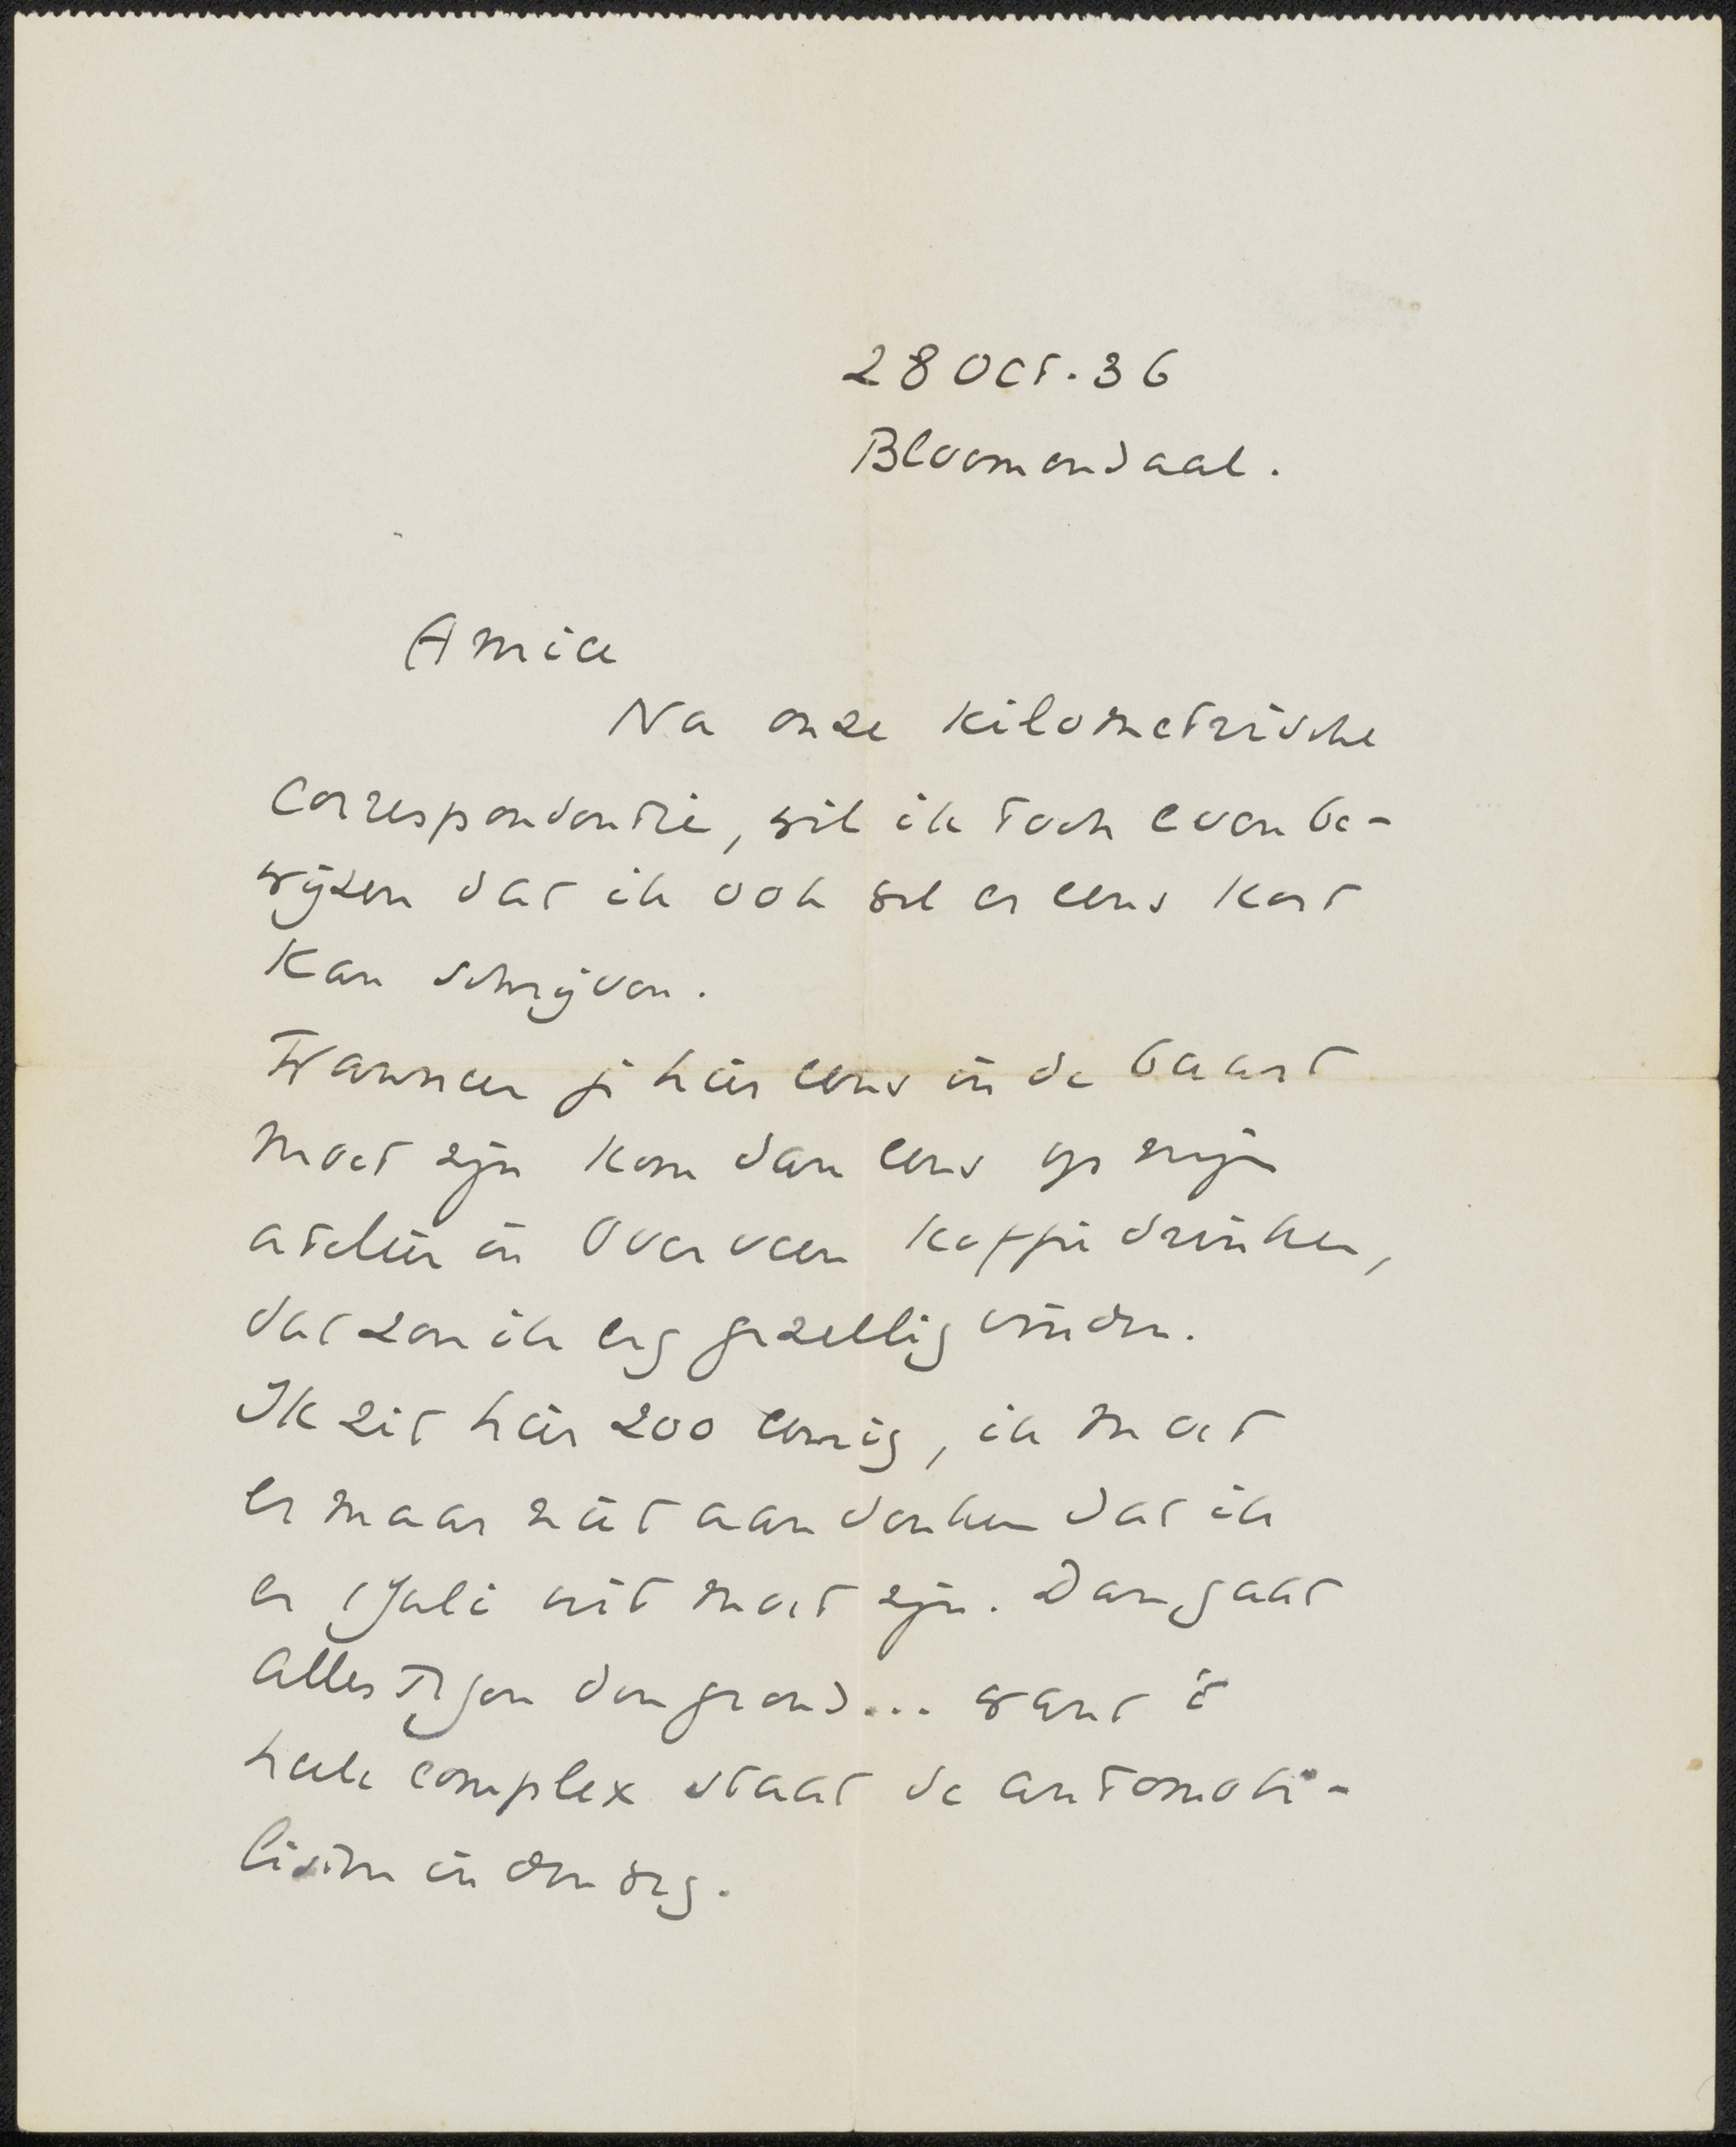 28 Oct. 36
Bloemendaal.
Amice
Na onze kilometrische
correspondentie, wil ik toch even be-
wijzen dat ik ook wel er eens kort
kan schrijven.
Wanneer je hier eens in de buurt
moet zijn kom dan eens op mijn
atelier in Overveen koffie drinken,
dat zou ik erg gezellig vinden.
Ik zit hier zoo eenig, ik moet
er maar niet aan denken dat ik
er 1 Juli uit moet zijn. Dan gaat
alles tegen den grond... want 't
heele complex staat de automobi-
listen in den weg.